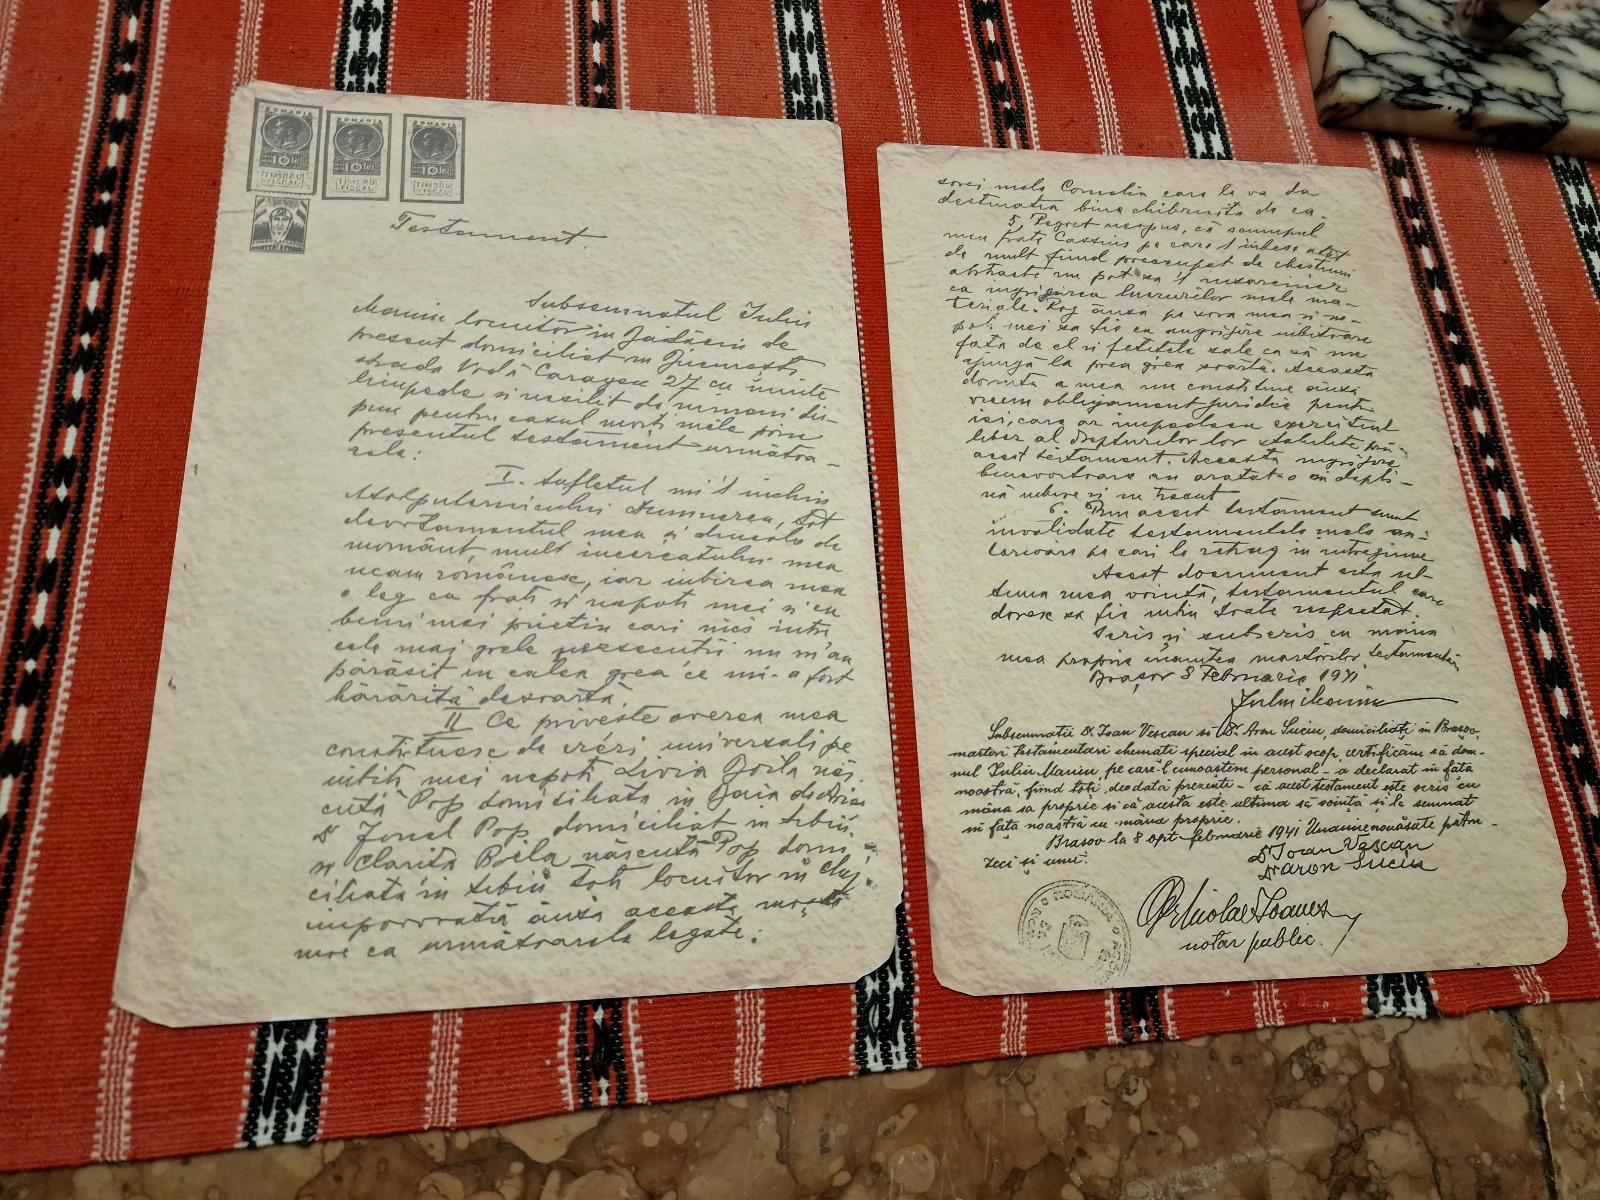 ROMANIA
10 lei
TIMBRU
FISCAL
ROMANIA
10 lei
TIMBRU
FISCAL
ROMANIA
10 lei
TIMBRU
FISCAL
Testament.
Subsemnatul Iuliu
Maniu locuitor in Bădăcin de
prezent domiciliat in Bucuresti
strada Vodă Caragea 27 cu minte
limpede si nesilit de nimeni dis-
pun pentru cazul morti mele prin
presentul testament urmatoa-
rele:
I. Sufletul mi'l inchin
Atotputernicului Dumnezeu, tot
devotamentul meu si dincolo de
mormânt, mult incercatului meu
neam românesc, iar iubirea mea
o leg cu frati si nepoti mei si cu
buni mei prietini cari nici intre
cele mai grele persecutii nu m'au
părăsit in calea grea ce mi-a fost
hărăzită de soartă.
II Ce priveste averea mea
constituesc de eréri universali pe
iubiti mei nepoti Livia Boila năs.
cută Pop domiciliata in Gaia de Aries
Dr Ionel Pop domiciliat in Sibiu,
si Clarita Boila născută Pop domi-
ciliată in Sibiu toti locuitor in Cluj
cu următoarele legate:
sorei mele Cornelia care le va da
destinatia bine chibzuita de ea.
5. Regret nespus, că scumpul
meu frate Cassius pe care'l iubesc atât
de mult fiind preocupat de chestiuni
abstracte nu pot sa'l insarcinez
cu ingrijirea lucrurilor mele ma-
teriale. Rog însă pe sora mea si ne-
poti mei sa fie cu ingrijire iubitoare
fata de el si fetitele sale ca să nu
ajungă la prea grea soartă. Aceasta
dorinta a mea nu constitue însă
vreun obligament juridic pentru
iei, care ar impiedeca exercitiul
liber al drepturilor lor stabilite prin
acest testament. Aceasta ingrijire
binevoitoare au aratat-o cu depli-
nă iubire si in trecut
6. Prin acest testament sunt
invalidate testamentele mele an-
terioare pe cari le retrag in intregime
Acest document este ul-
tima mea vointă, testamentul care
doresc sa fie intru toate respectat.
Scris si subscris cu mâna
mea proprie inaintea martorilor testamentari
Brașov 8 Februarie 1941
Iuliu Maniu
Subsemnatii Dr. Ioan Vescan si Dr. Aron Suciu, domiciliati in Brasov,
martori testamentari chemati special in acest scop, certificăm că dom-
nul Iuliu Maniu, pe care-l cunoaștem personal - a declarat in fata
noastră, fiind toti, deodată prezenti - că acest testament este scris cu
mâna sa proprie si că acesta este ultima sa voință și l-a semnat
in fata noastră cu mâna proprie.
Brasov la 8 opt februarie 1941 Unamienouăsute patru-
zeci și unu.
Dr Ioan Vescan
Dr Aron Suciu
Nicolae
notar public.
ROMÂNIA